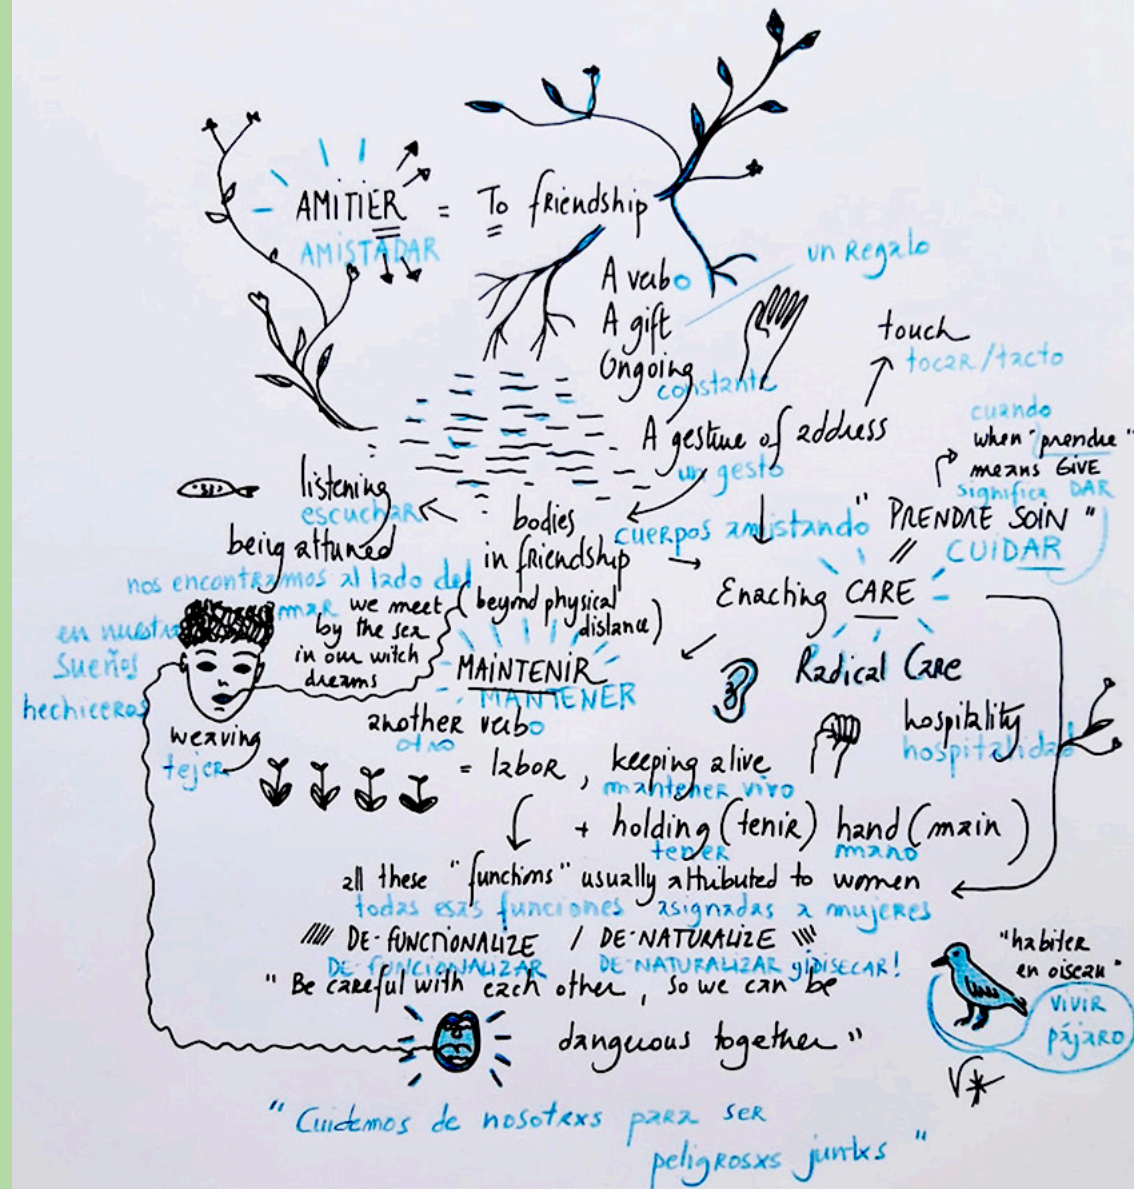 AMITIER = To friendship
AMISTADAR
A verbo
un Regalo
A gift
Ongoing
constante
touch
tocar/tacto
A gesture of address
un gesto
cuando
when "prendre"
means GIVE
significa DAR
"PRENDRE SOIN"
CUIDAR
listening
escuchar
being attuned
bodies
in friendship
cuerpos amistando
(beyond physical
distance)
nos encontramos al lado del
mar
en nuestros
sueños
hechiceros
we meet
by the sea
in our witch
dreams
Enacting CARE
Radical Care
MAINTENIR
MANTENER
another verbo
otro
weaving
tejer
hospitality
hospitalidad
= labor, keeping alive
mantener vivo
+ holding (tenir) hand (main)
tener mano
all these "functions" usually attributed to women
todas esas funciones asignadas a mujeres
DE-FUNCTIONALIZE / DE-NATURALIZE
DE-FUNCIONALIZAR DE-NATURALIZAR
"Be careful with each other, so we can be
dangerous together"
"habiter
en oiseau"
vivir
pájaro
"Cuidemos de nosotrxs para ser
peligrosxs juntxs"